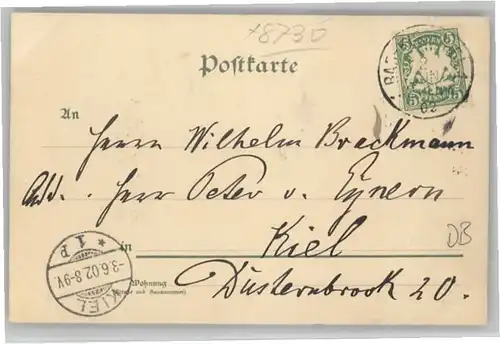 +8730
Postkarte
5 5
02
5 5
An
Herrn Wilhelm Brackmann
Add. Herr Peter v. Eynern
Kiel
DB
* 1 P
-3.6.02.8-9V.
KIEL
in
Wohnung
(Straße und Hausnummer)
Düsternbrook 20.